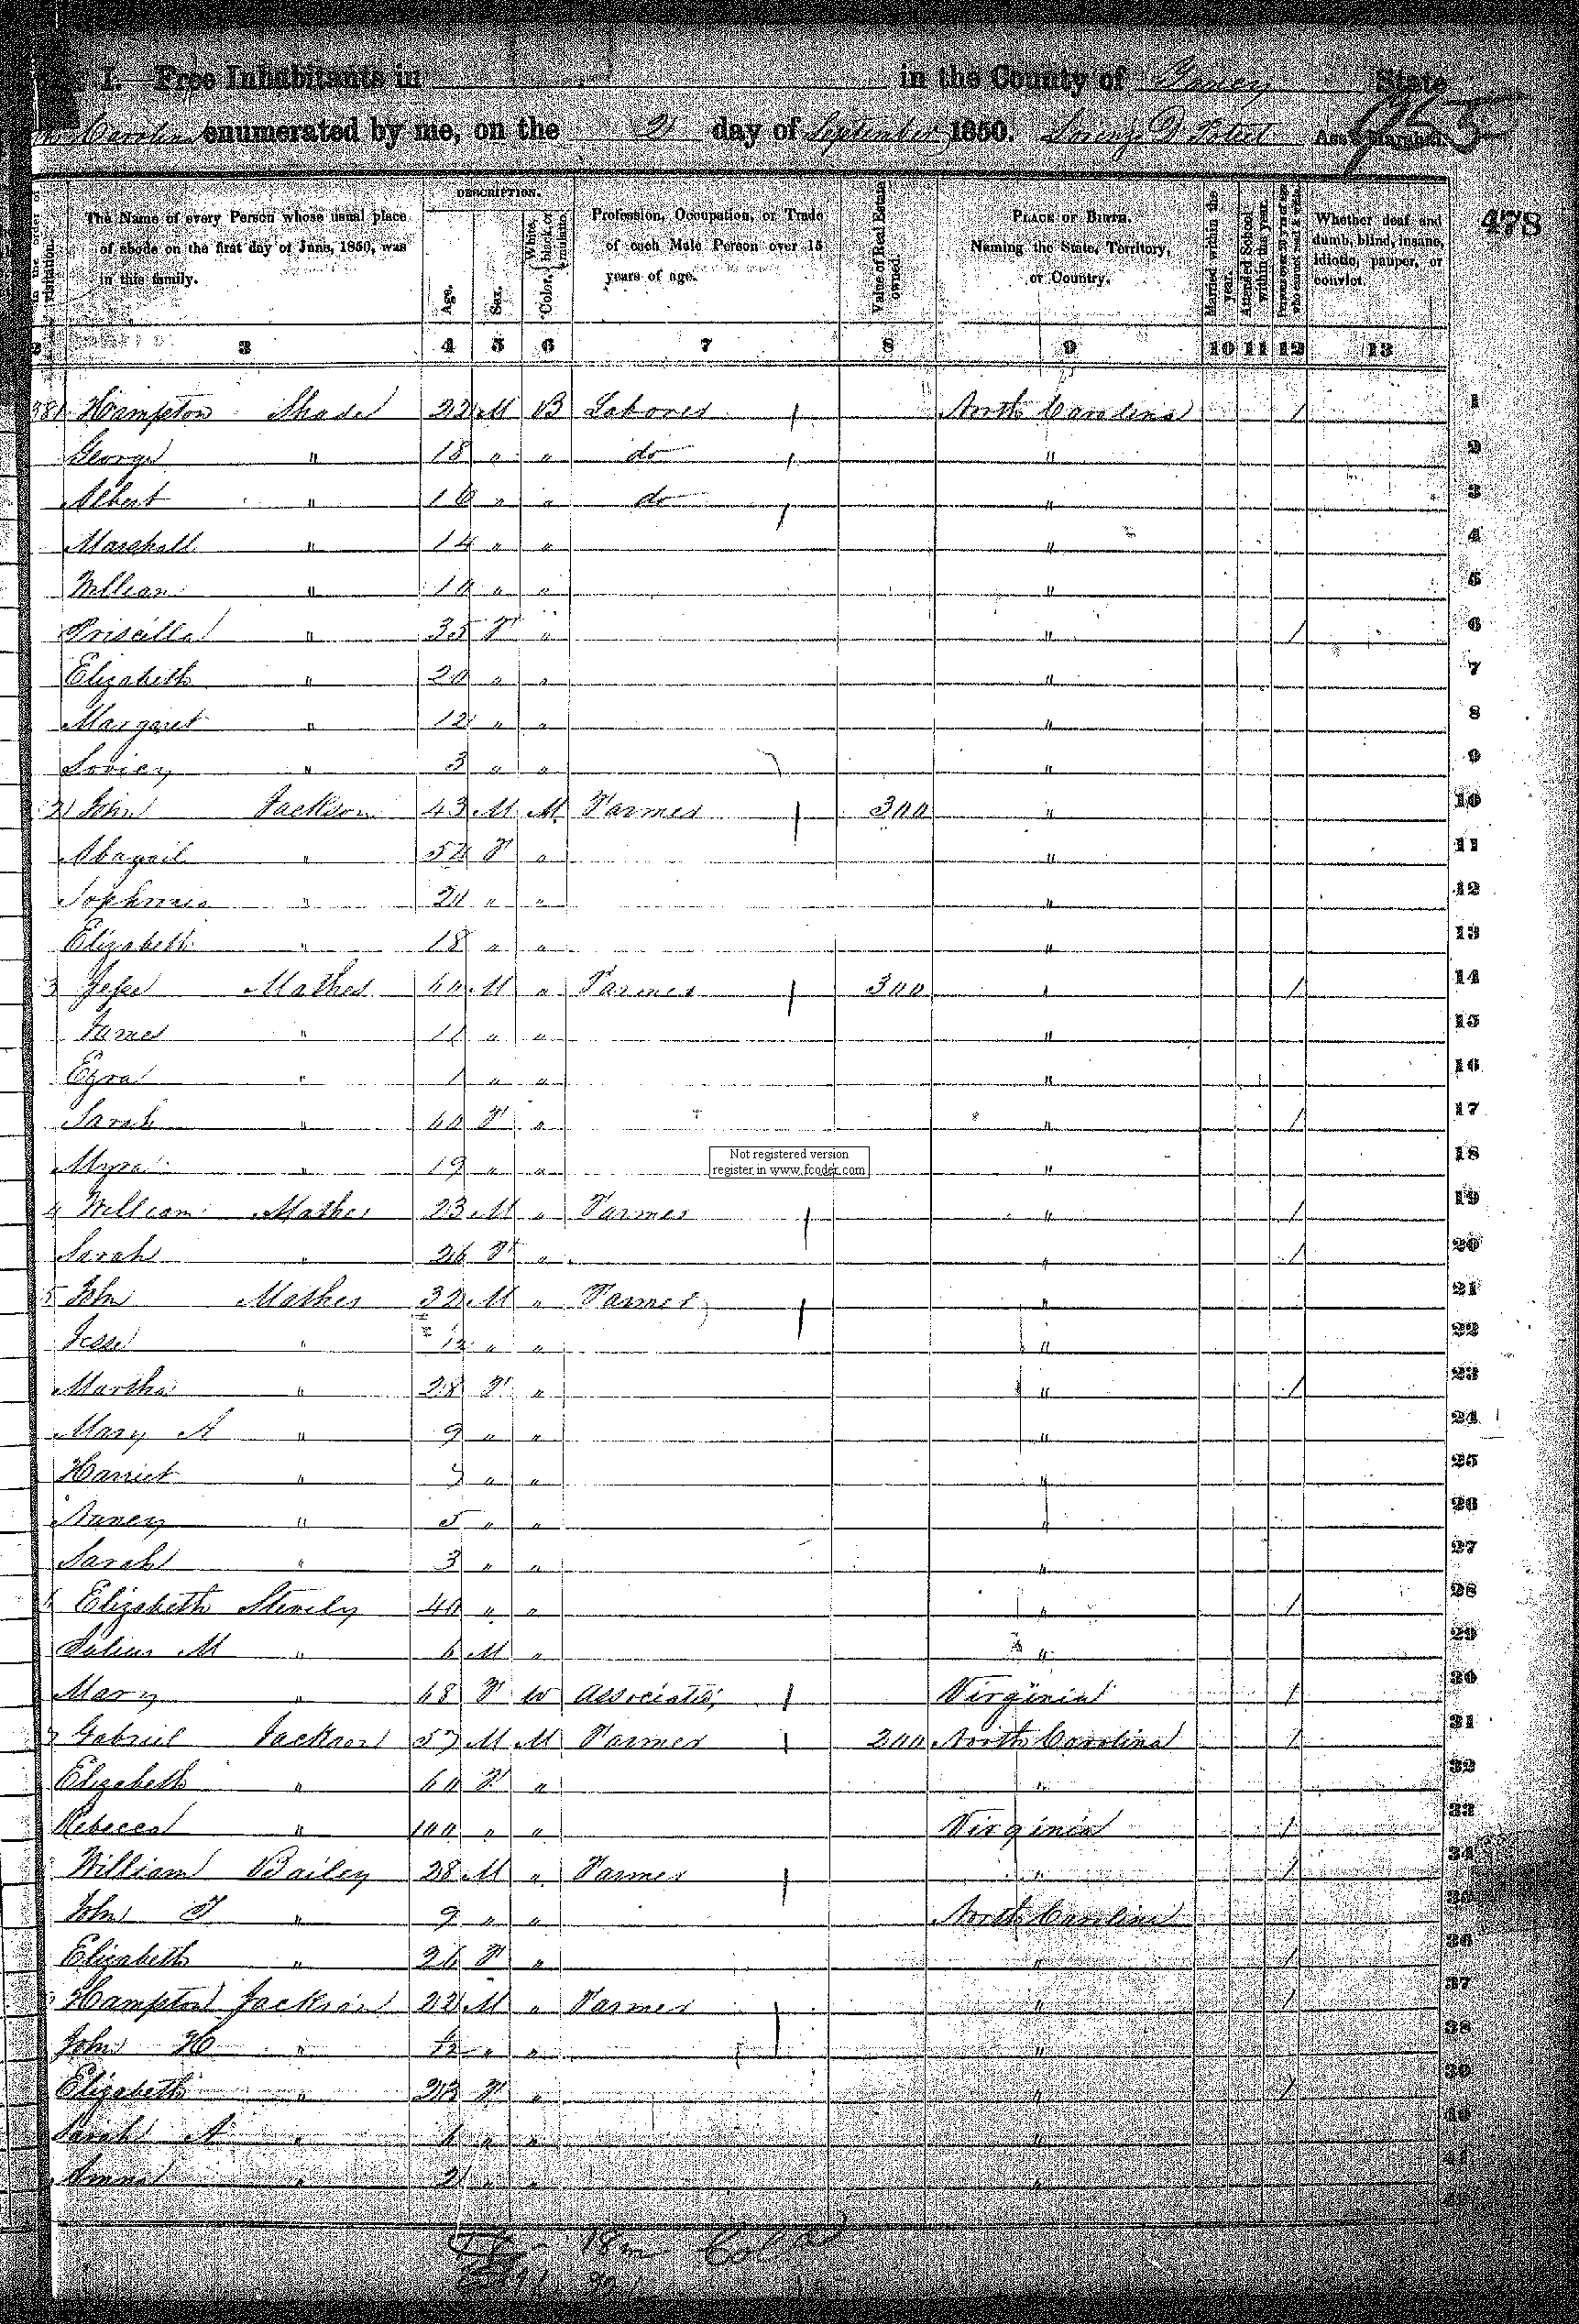 I. Free Inhabitants in in the County of Yancy State
Carolina enumerated by me, on the 2 day of September 1850. Lorenzo D Ass't Marshal.
478
in the order of visitation.
The Name of every Person whose usual place of abode on the first day of June, 1850, was in this family.
DESCRIPTION.
Age.
Sex.
Color, White, black, or mulatto.
Profession, Occupation, or Trade of each Male Person over 15 years of age.
Value of Real Estate owned.
PLACE OF BIRTH. Naming the State, Territory, or Country.
Married within the year.
Attended School within the year.
Persons over 20 y'rs of age who cannot read & write.
Whether deaf and dumb, blind, insane, idiotic, pauper, or convict.
2 3 4 5 6 7 8 9 10 11 12 13
381 Hampton Shade 22 M B Laborer North Carolina / 1
George " 18 " " do " 2
Albert " 16 " " do " 3
Marshall " 14 " " " 4
William " 10 " " " 5
Priscilla " 35 F " " / 6
Elizabeth " 20 " " " 7
Margaret " 12 " " " 8
Lovicy " 3 " " " 9
2 John Jackson 43 M M Farmer 300 " 10
Abagail " 52 F " " 11
" " " " 12
Elizabeth " 18 " " " 13
3 Jesse Mathes 60 M " Farmer 300 " / 14
James " 11 " " " 15
Ezra " 1 " " " 16
Sarah " 60 F " " / 17
Not registered version
register in www.fcoder.com
Myra " 19 " " " 18
4 William Mathes 23 M " Farmer " / 19
Sarah " 26 F " " / 20
5 John Mathes 32 M " Farmer " 21
Jesse " 12 " " " 22
Martha " 28 F " " / 23
Mary A " 9 " " " 24
Harriet " " " " 25
Nancy " 5 " " " 26
Sarah " 3 " " " 27
6 Elizabeth 40 " " " / 28
Julius M " 6 M " " 29
Mary " 68 F W Virginia / 30
7 Gabriel Jackson 57 M M Farmer 200 North Carolina / 31
Elizabeth " 60 F " " 32
Rebecca " 100 " " Virginia / 33
William Bailey 28 M " Farmer " / 34
John " 9 " " North Carolina 35
Elizabeth " 26 F " " / 36
Hampton Jackson 22 M " Farmer " / 37
John H " " " " 38
Elizabeth " 23 F " " / 39
Sarah A " 6 " " " 40
" 2 " " " 41
42
18 m